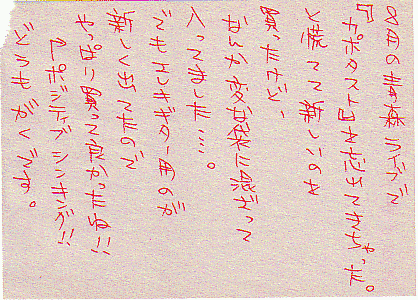 8月の ライブで
『カポタスト』を忘れてきちゃった。
と焦って新しいのを
買ったけど、
なんか 袋に混ざって
入ってました…。
でもエレキギター用のが
新しく出てたので
やっぱり買って良かったね!!
ポジティブシンキング!!
どうもがくです。